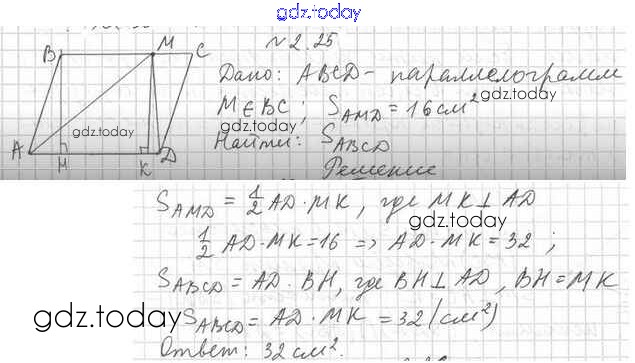 gdz.today
№ 2.25
B M C
Дано: ABCD - параллелограмм
gdz.today
M∈BC; S_AMD = 16 см²
gdz.today
gdz.today
Найти: S_ABCD
A H K D
Решение
S_AMD = 1/2 AD · MK, где MK ⊥ AD
gdz.today
1/2 AD · MK = 16 => AD · MK = 32;
S_ABCD = AD · BH, где BH ⊥ AD, BH = MK
gdz.today
S_ABCD = AD · MK = 32 (см²)
gdz.today
Ответ: 32 см².